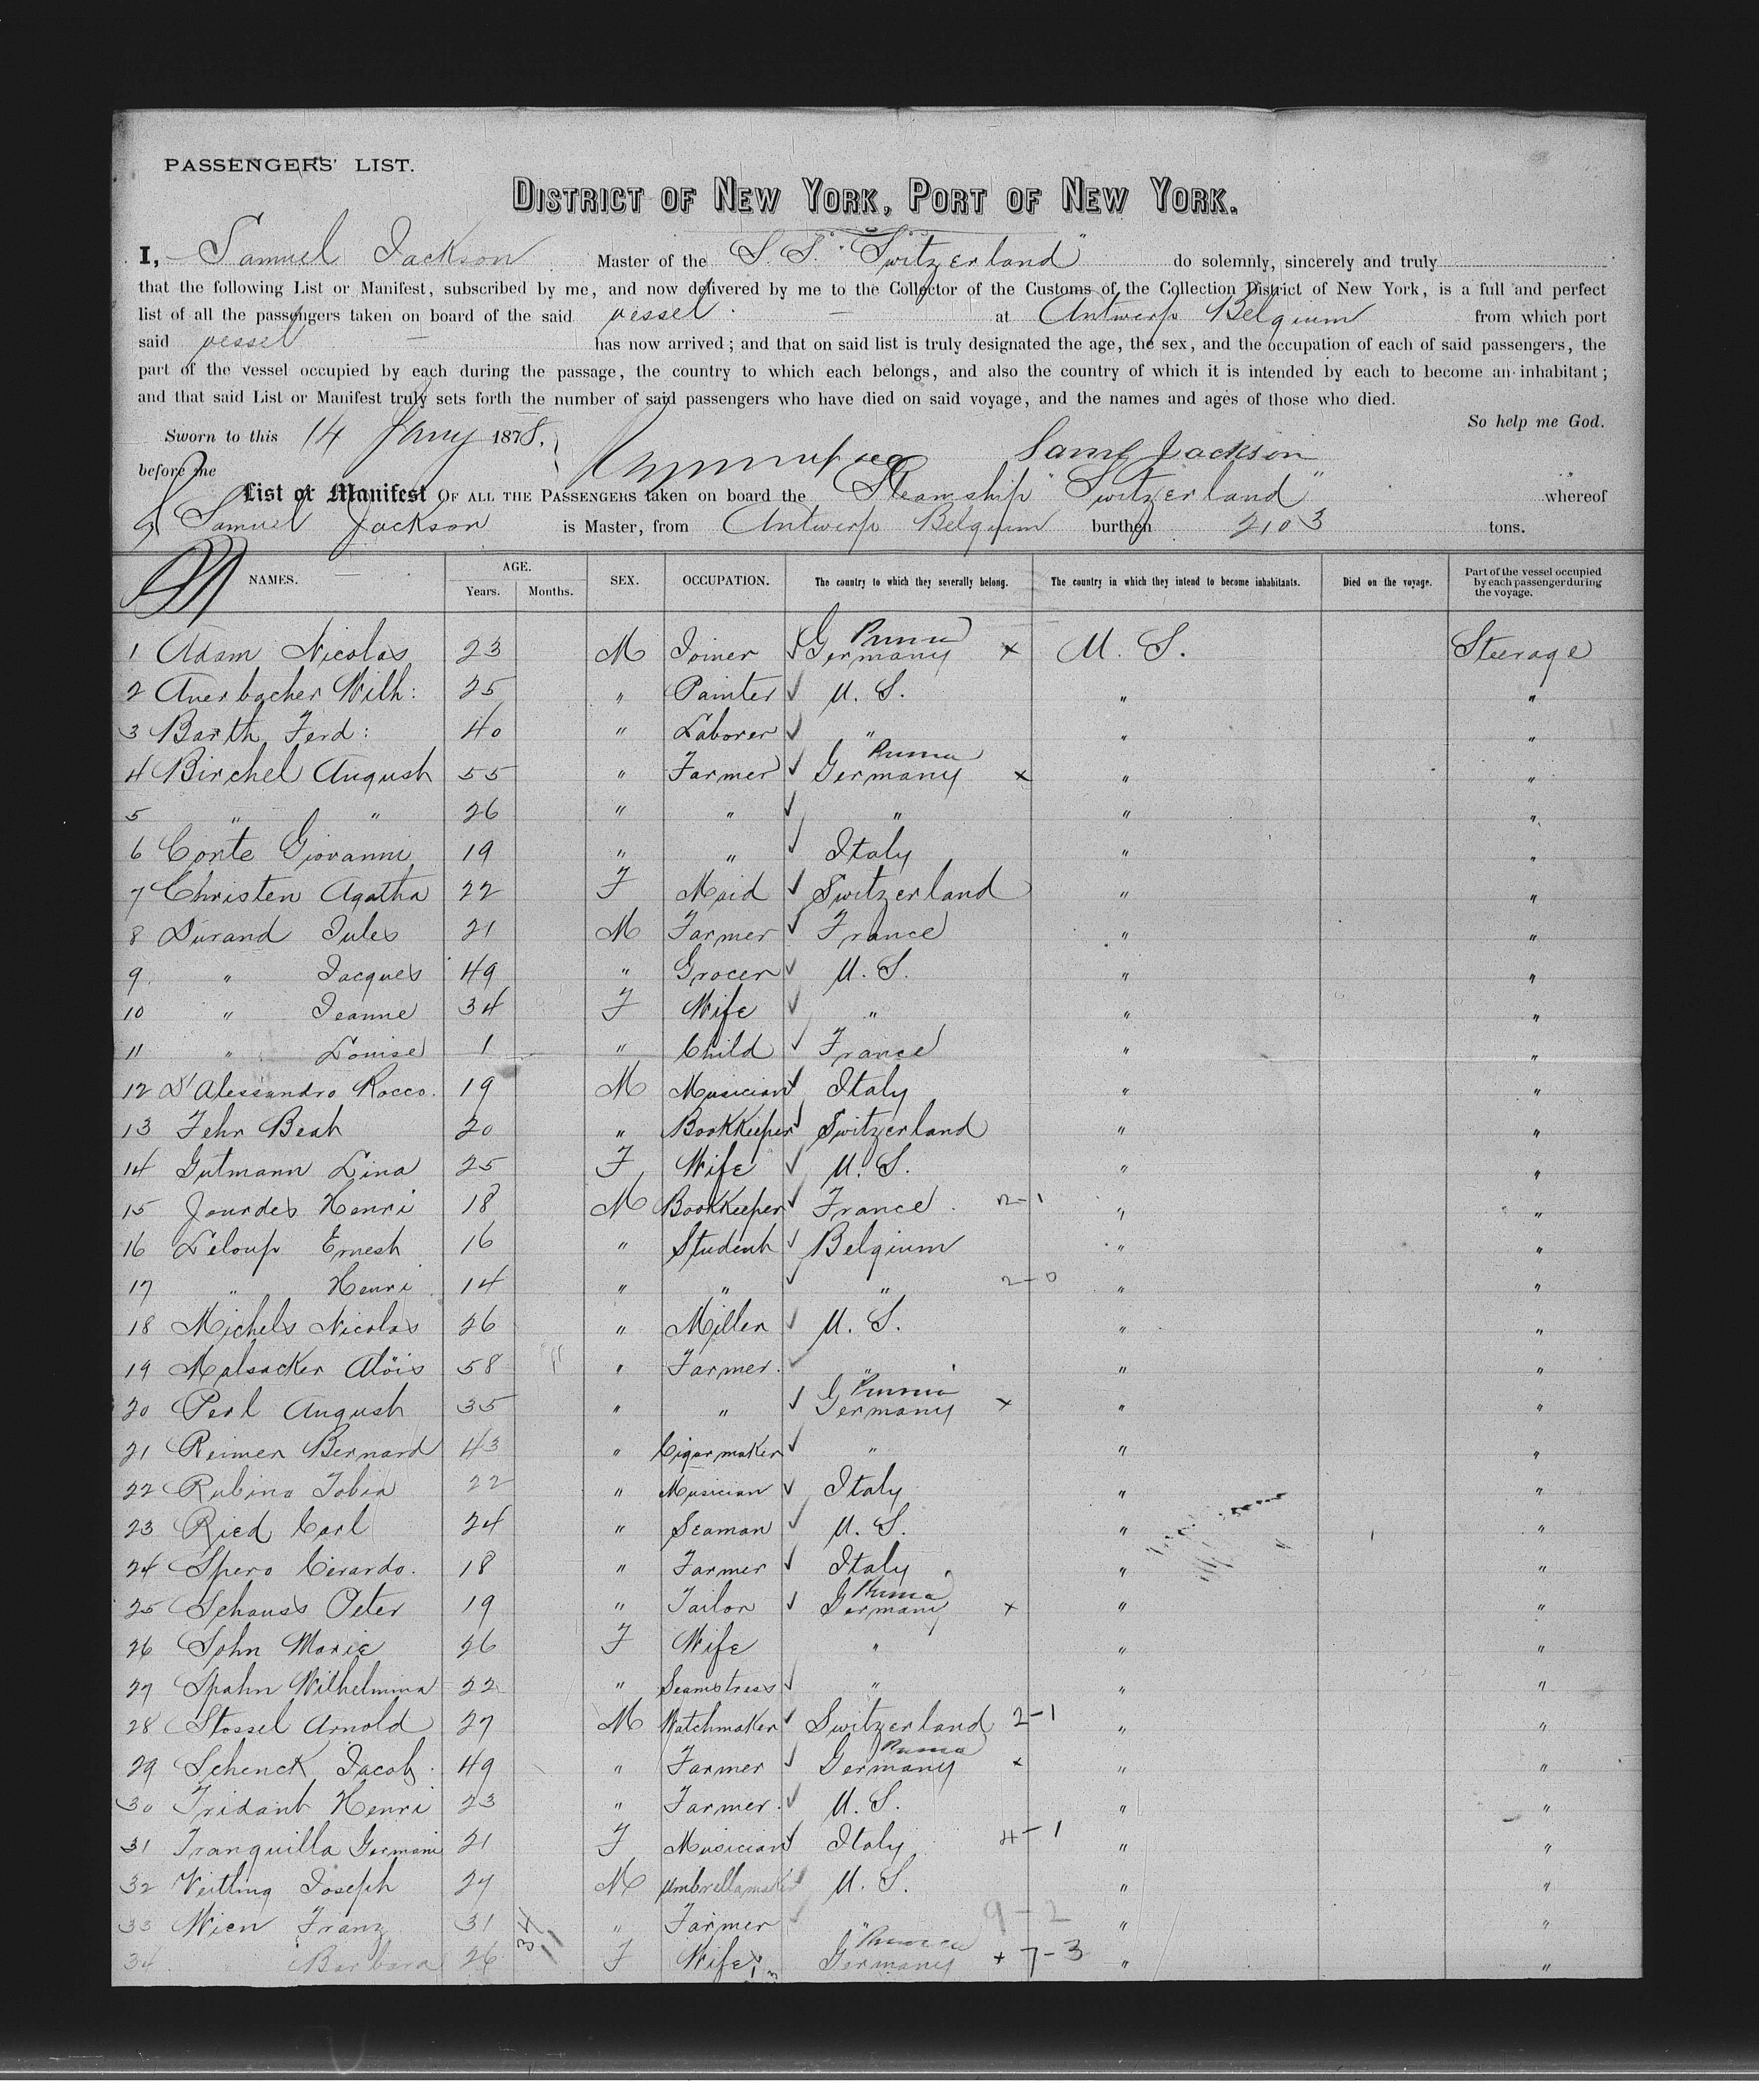 PASSENGERS' LIST.
DISTRICT OF NEW YORK, PORT OF NEW YORK.
I, Samuel Jackson Master of the S. S. "Switzerland" do solemnly, sincerely and truly
that the following List or Manifest, subscribed by me, and now delivered by me to the Collector of the Customs of the Collection District of New York, is a full and perfect
list of all the passengers taken on board of the said vessel at Antwerp Belgium from which port
said vessel has now arrived; and that on said list is truly designated the age, the sex, and the occupation of each of said passengers, the
part of the vessel occupied by each during the passage, the country to which each belongs, and also the country of which it is intended by each to become an inhabitant;
and that said List or Manifest truly sets forth the number of said passengers who have died on said voyage, and the names and ages of those who died.
So help me God.
Sworn to this 14 Jany 1878.
before me Saml Jackson
List or Manifest OF ALL THE PASSENGERS taken on board the Steamship "Switzerland" whereof
Samuel Jackson is Master, from Antwerp Belgium burthen 2103 tons.
NAMES. AGE. Years. Months. SEX. OCCUPATION. The country to which they severally belong. The country in which they intend to become inhabitants. Died on the voyage. Part of the vessel occupied by each passenger during the voyage.
1 Adam Nicolas 23 M Joiner ✓ Germany x U. S. Steerage
2 Auerbacher Wilh: 25 " Painter ✓ U. S. " "
3 Barth Ferd: 40 " Laborer ✓ " " "
4 Birchel August 55 " Farmer ✓ Germany x " "
5 " " 26 " " ✓ " " "
6 Conte Giovanni 19 " " ✓ Italy " "
7 Christen Agatha 22 F Maid ✓ Switzerland " "
8 Durand Jules 21 M Farmer ✓ France " "
9 " Jacques 49 " Grocer ✓ U. S. " "
10 " Jeanne 34 F Wife ✓ " " "
11 " Louise 1 " Child ✓ France " "
12 D'Alessandro Rocco. 19 M Musician ✓ Italy " "
13 Fehr Beat 20 " Bookkeeper ✓ Switzerland " "
14 Gutmann Lina 25 F Wife ✓ U. S. " "
15 Jourdes Henri 18 M Bookkeeper ✓ France 2-1 " "
16 Leloup Ernest 16 " Student ✓ Belgium " "
17 " Henri 14 " " ✓ " 2-0 " "
18 Michels Nicolas 26 " Miller ✓ U. S. " "
19 Malsacker Aloïs 58 " Farmer. ✓ " " "
20 Perl August 35 " " ✓ Germany x " "
21 Reimer Bernard 43 " Cigarmaker ✓ " " "
22 Rubino Tobia 22 " Musician ✓ Italy " "
23 Ried Carl 24 " Seaman ✓ U. S. " "
24 Spero Cirardo. 18 " Farmer ✓ Italy " "
25 Schauss Peter 19 " Tailor ✓ Germany x " "
26 Sohn Marie 26 F Wife " " "
27 Spahn Wilhelmina 22 " Seamstress ✓ " " "
28 Stossel Arnold 27 M Watchmaker ✓ Switzerland 2-1 " "
29 Schenck Jacob. 49 " Farmer ✓ Germany x " "
30 Tridant Henri 23 " Farmer. ✓ U. S. " "
31 Tranquilla Germani 21 F Musician ✓ Italy 4-1 " "
32 Veitling Joseph 27 M Umbrellamaker ✓ U. S. " "
33 Wien Franz 31 " Farmer ✓ " 9-2 " "
34 " Barbara 26 F Wife Germany x 7-3 " "